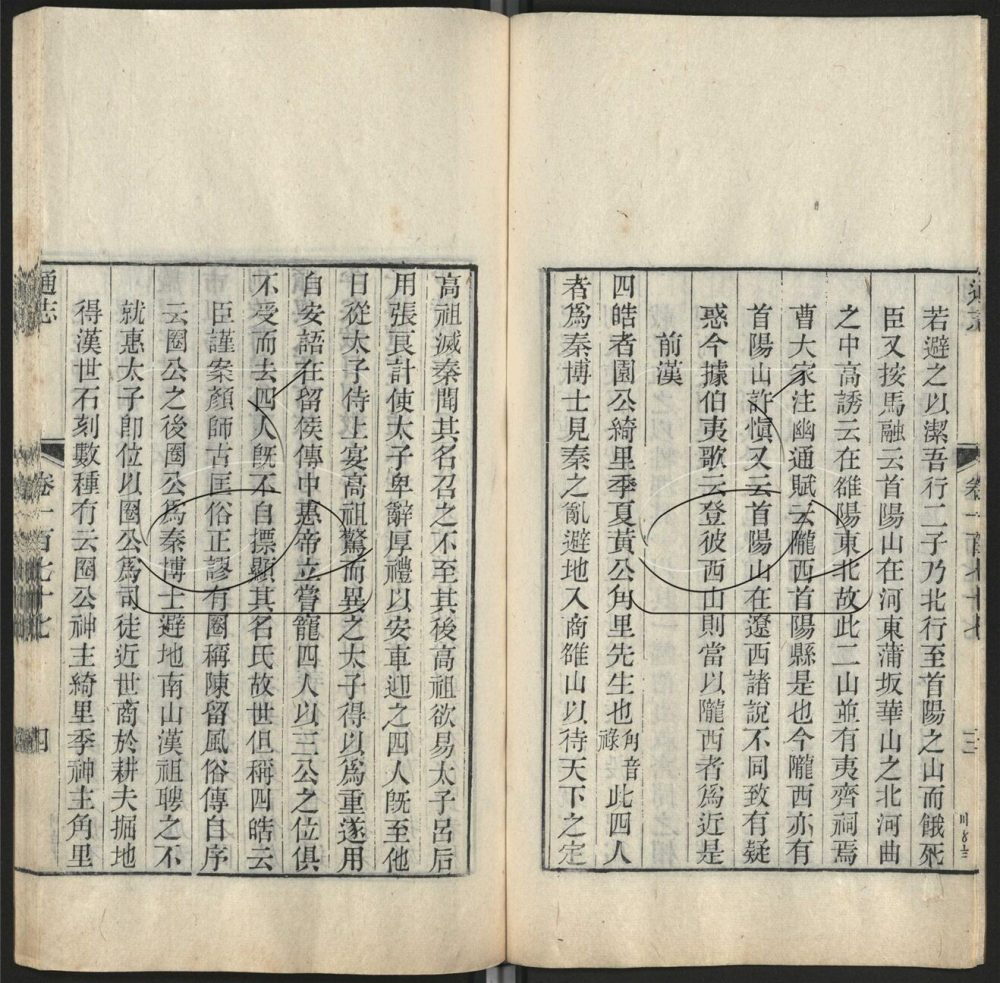 若避之以潔吾行二子乃北行至首陽之山而餓死
臣又按馬融云首陽山在河東蒲坂華山之北河曲
之中高誘云在雒陽東北故此二山並有夷齊祠焉
曹大家注幽通賦云隴西首陽縣是也今隴西亦有
首陽山許慎又云首陽山在遼西諸說不同致有疑
惑今據伯夷歌云登彼西山則當以隴西者爲近是
前漢
四皓者園公綺里季夏黃公角里先生也角音祿此四人
者爲秦博士見秦之亂避地入商雒山以待天下之定
高祖滅秦聞其名召之不至其後高祖欲易太子呂后
用張良計使太子卑辭厚禮以安車迎之四人旣至他
日從太子侍上宴高祖驚而異之太子得以爲重遂用
自安語在留侯傳中惠帝立嘗寵四人以三公之位俱
不受而去四人旣不自摽顯其名氏故世但稱四皓云
臣謹案顏師古匡俗正謬有圈稱陳留風俗傳自序
云圈公之後圈公爲秦博士避地南山漢祖聘之不
就惠太子即位以圈公爲司徒近世商於耕夫掘地
得漢世石刻數種有云圈公神主綺里季神主角里
通志
卷一百七十七
四